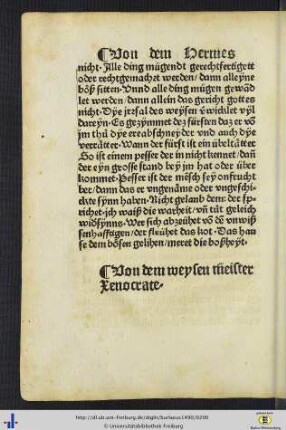 ¶Von dem Hermes
nicht·Alle ding mügendt gerechtfertigett
oder rechtgemachet werden/dann alleyne
böß sitten·Vnnd alle ding mügen gewäd
let werden/dann allein das gericht gottes
nicht·Dye jrrsal des weysen
dar eyn·Es gezymmet dez fürsten daz er võ
jm thü dye ereabschneyder vnd auch dye
verrätter·Wann der fürst ist ein übeltätter
So ist einem pesser der in nicht kennet/dañ
der eyn grosse stand bey jm hat oder über
kommet·Pesser ist der mēsch sey onfrucht
ber/dann das er vngenäme oder vngeschi-
ckte synn haben·Nicht gelaub dem: der sp-
richet·jch waiß die warheit/vñ tüt geleich
widsynns·Wer sich abzeühet võ
senhafftigen/der fleühet das kot·Das hau
se dem bösen gelihen/meret die boßheyt·
¶Von dem weysen meister
Xenocrate·
http://dl.ub.uni-freiburg.de/diglit/burlaeus1490/0200
© Universitätsbibliothek Freiburg